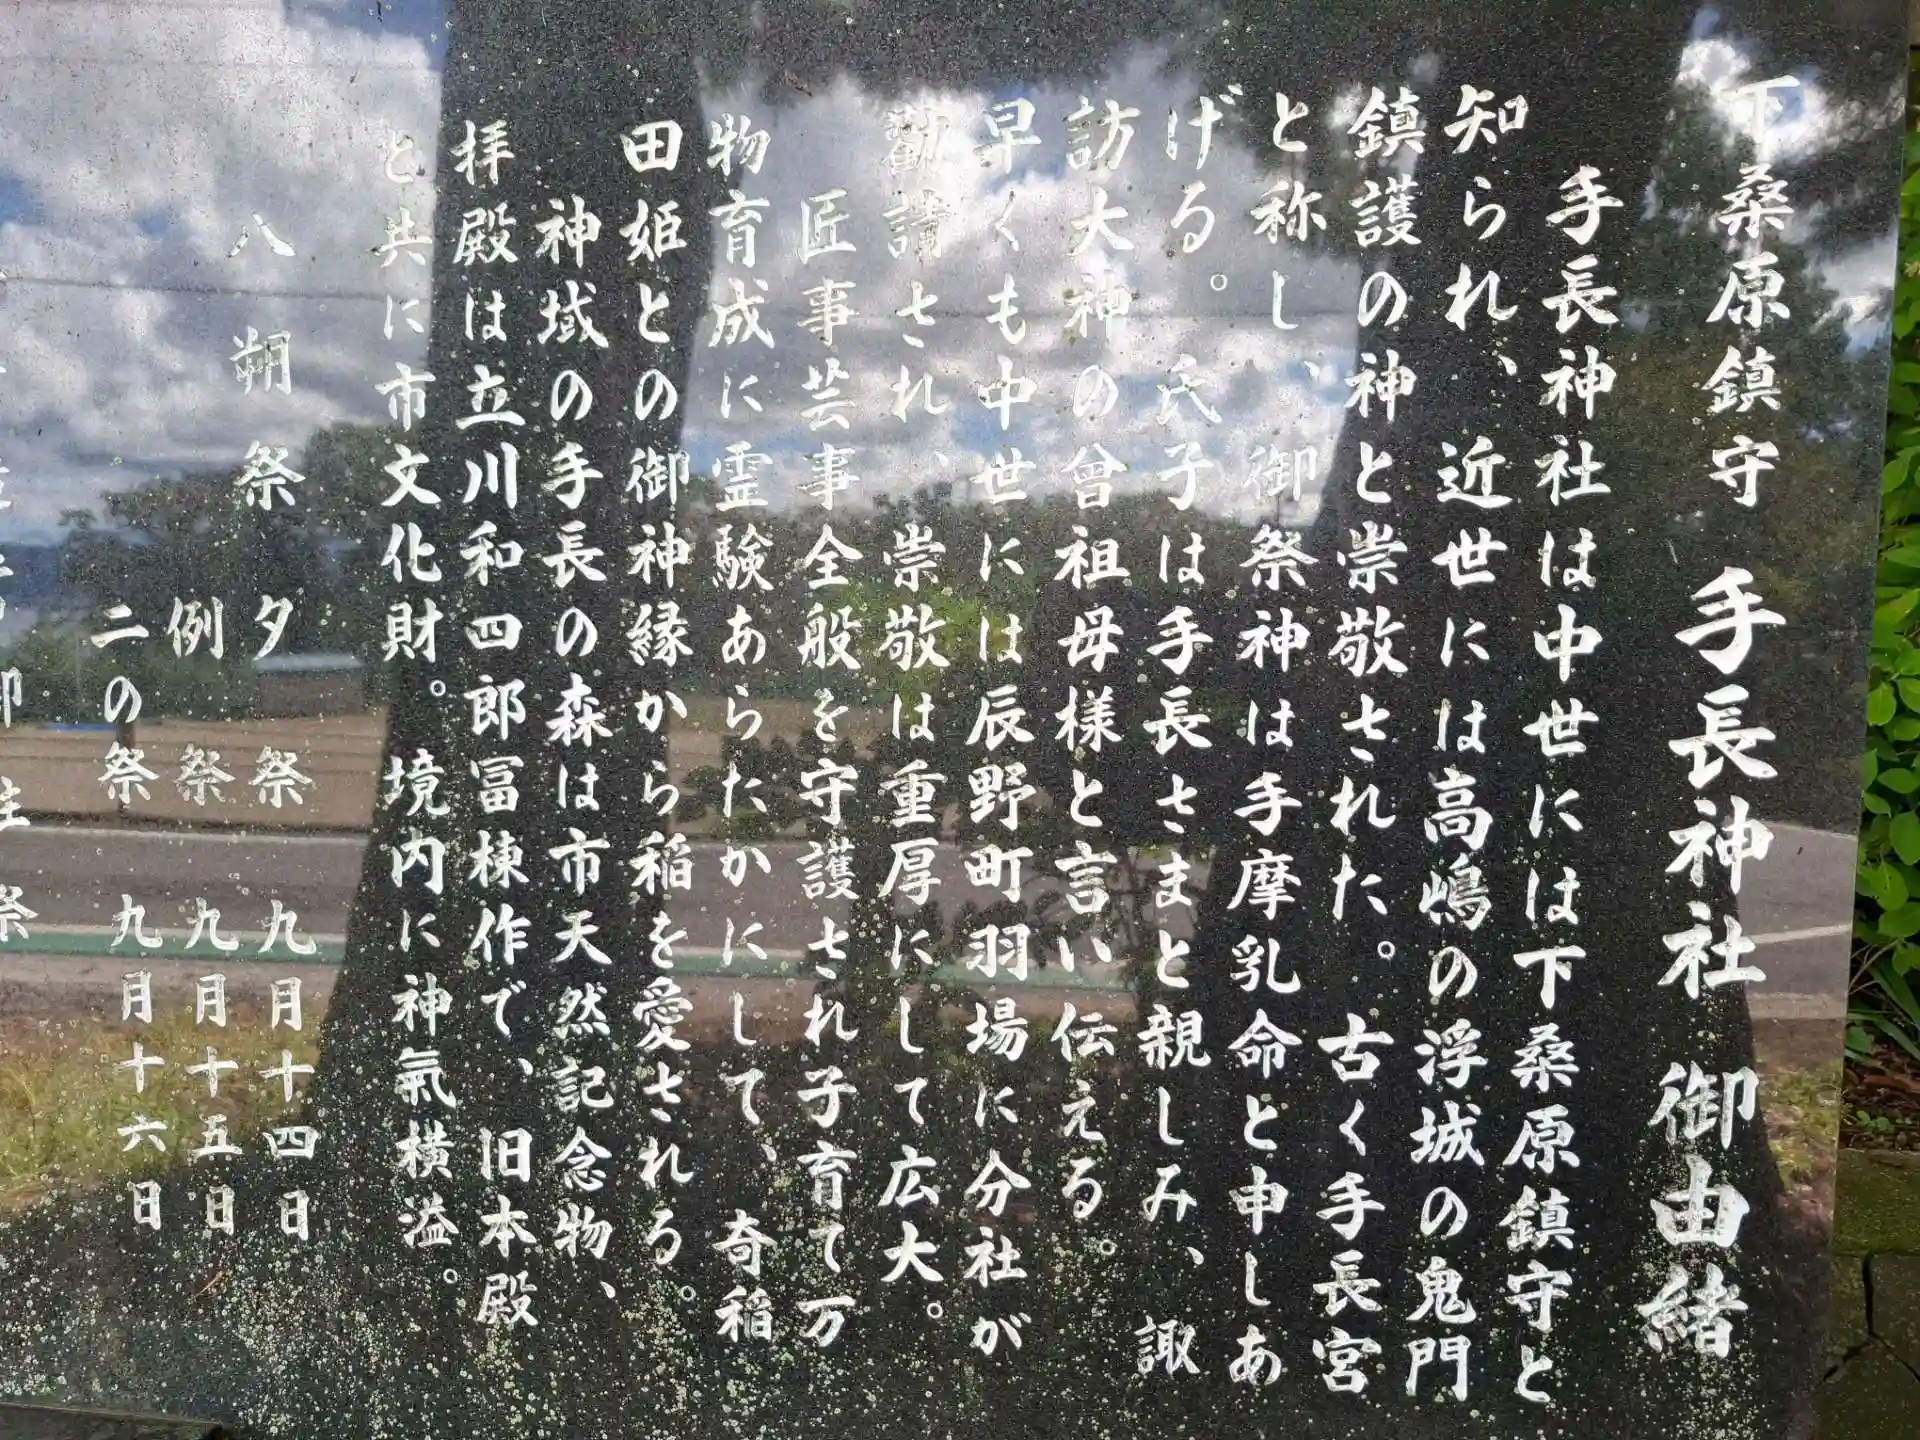 下桑原鎮守 手長神社 御由緒
手長神社は中世には下桑原鎮守と
知られ、近世には高嶋の浮城の鬼門
鎮護の神と崇敬された。古く手長宮
と称し、御祭神は手摩乳命と申しあ
げる。氏子は手長さまと親しみ、諏
訪大神の曾祖母様と言い伝える。
早くも中世には辰野町羽場に分社が
勸請され、崇敬は重厚にして広大。
匠事芸事全般を守護され子育て万
物育成に霊験あらたかにして、奇稲
田姫との御神縁から稲を愛される。
神域の手長の森は市天然記念物、
拝殿は立川和四郎冨棟作で、旧本殿
と共に市文化財。境内に神氣横溢。
八朔祭 夕祭 九月十四日
例祭 九月十五日
二の祭 九月十六日